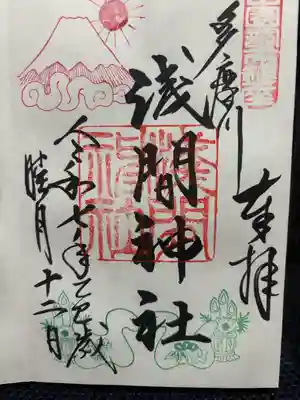 奉拝
多摩川
浅間神社
令和七年乙巳歳
睦月十二日